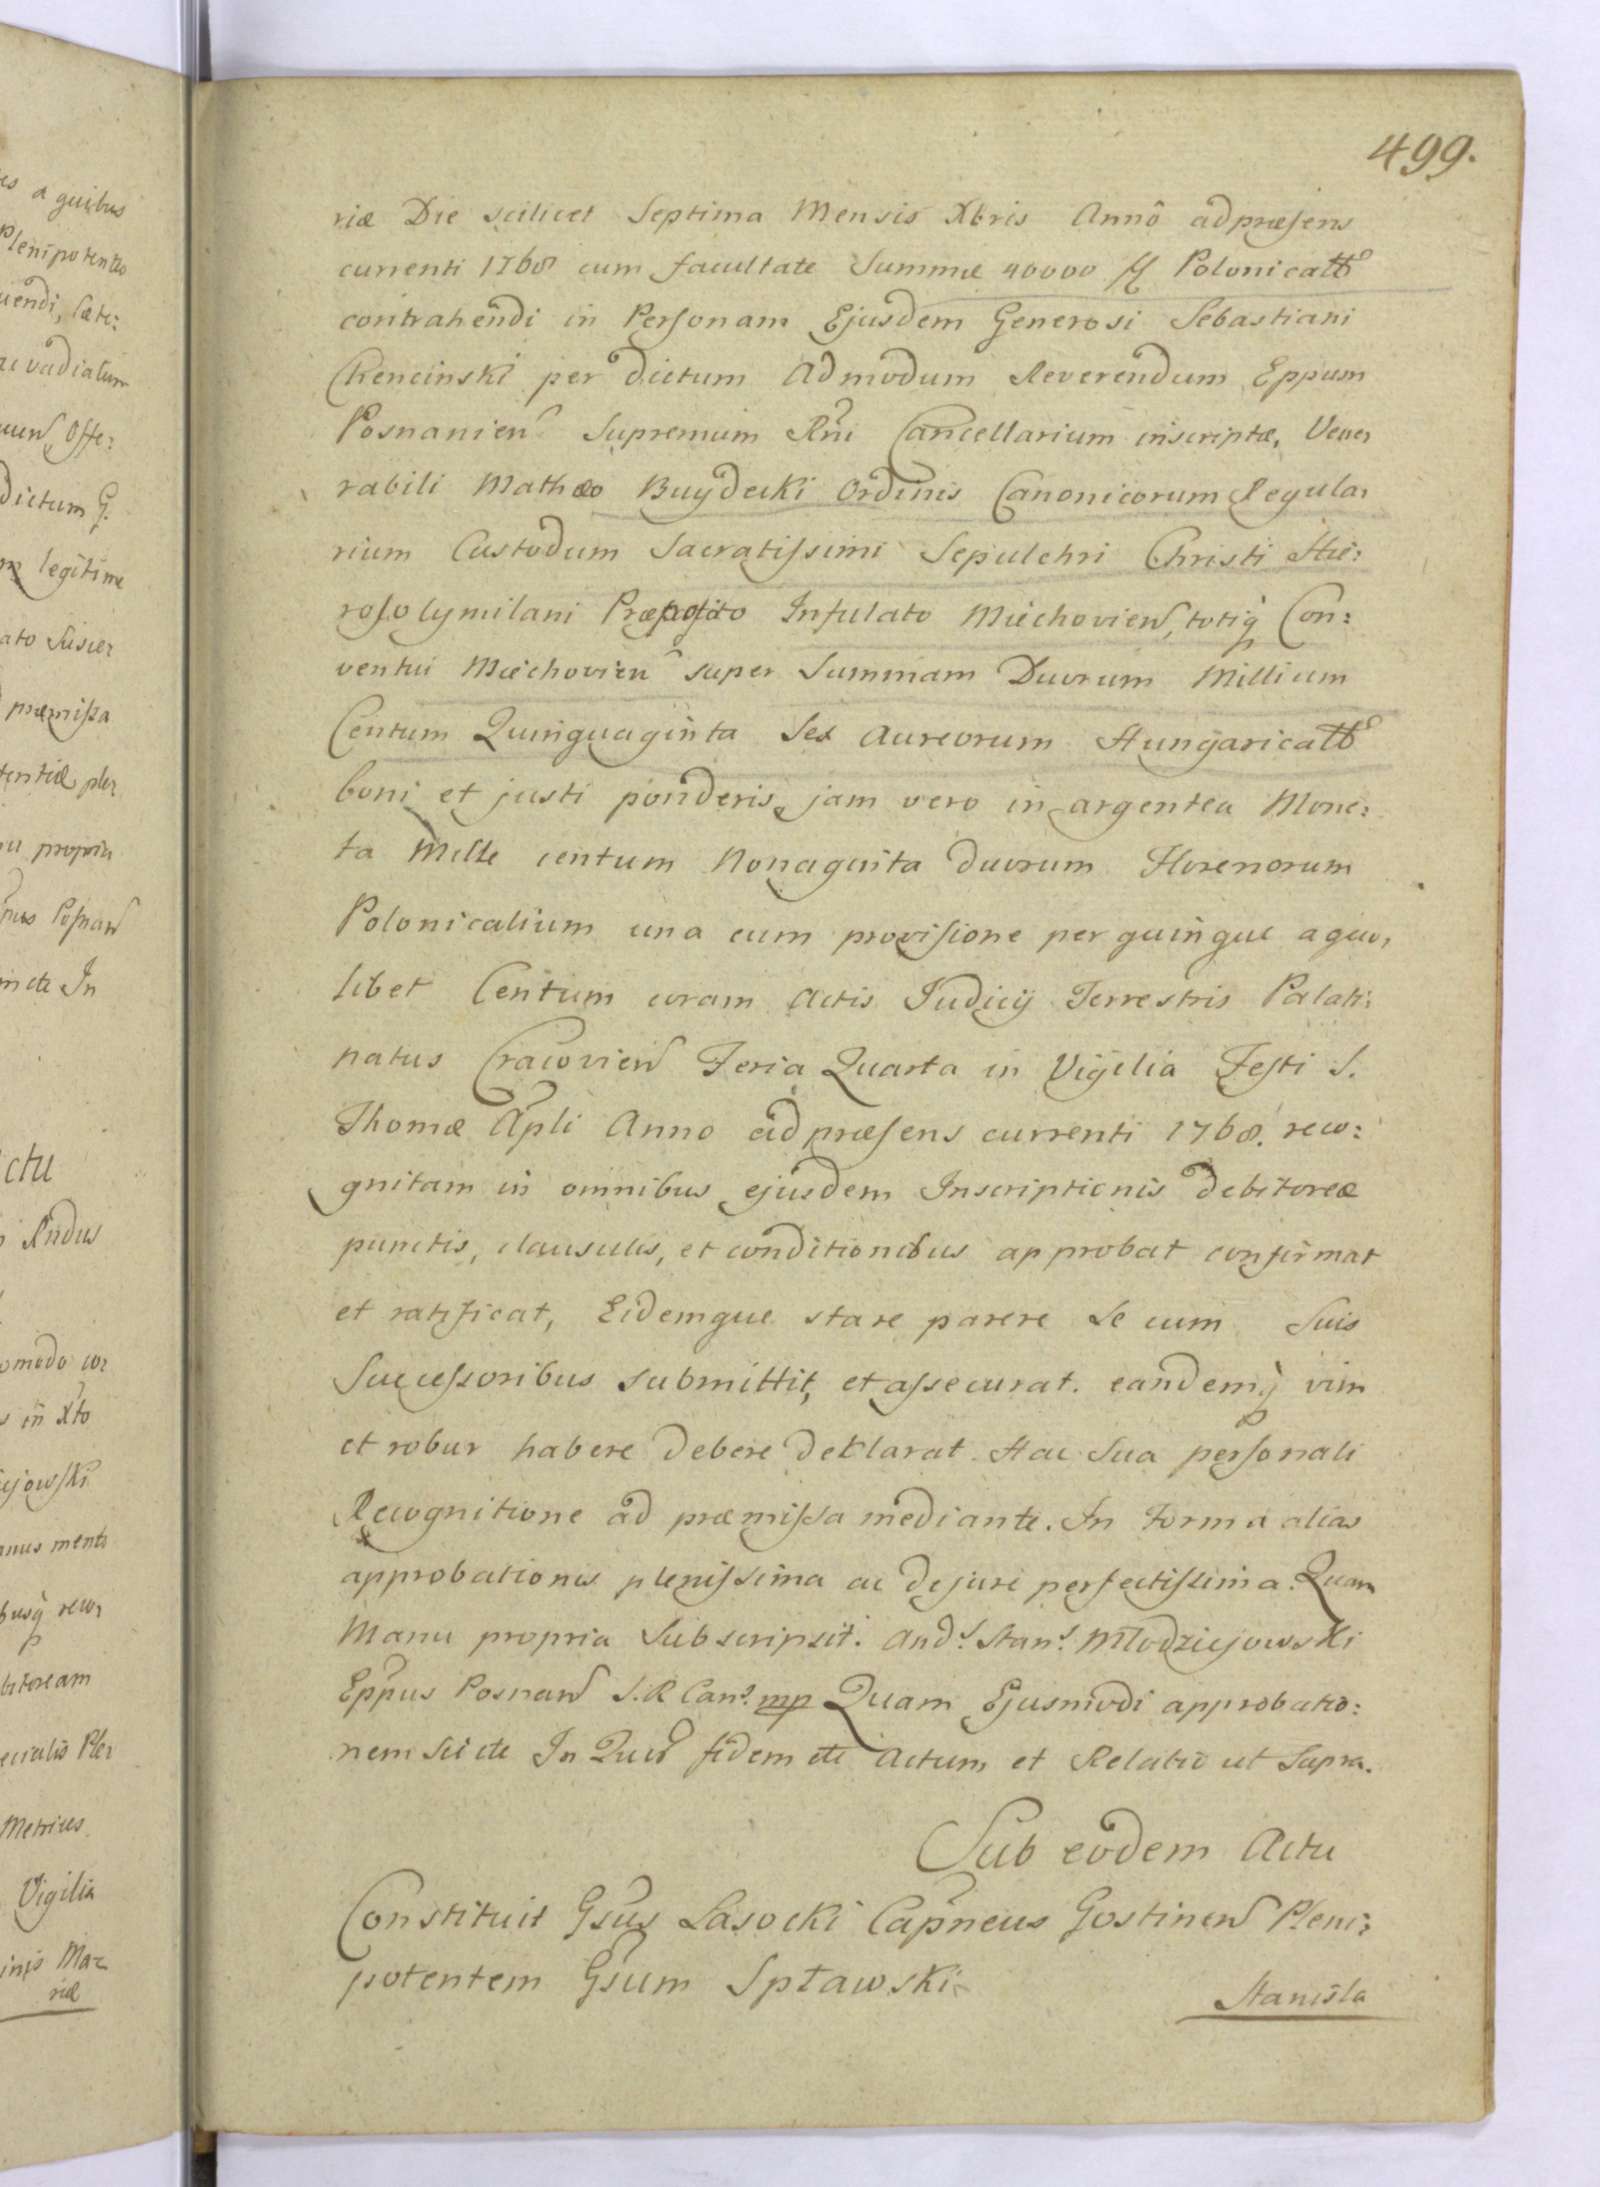 499.
riæ Die scilicet Septima Mensis Xbris Annô ad præsens
currenti 1768 cum facultate Summæ 40000 fl Polonicall
contrahendi in Personam Ejusdem Generosi Sebastiani
Chencinski per dictum Admodum Reverendum Eppum
Posnanien Supremum Rni Cancellarium inscriptæ, Vene,
rabili Mathæo Buydecki Ordinis Canonicorum Regula,
rium Custodum Sacratissimi Sepulchri Christi Hie:
rosolymitani Præposito Infulato Miechovien, totiq Con:
ventui Miechovien super Summam Duorum Millium
Centum Quinquaginta Sex Aureorum Hungaricall
boni et justi ponderis, jam vero in argentea Mone:
ta Mille centum Nonaginta duorum Florenorum
Polonicalium una cum provisione per quinque a quo,
libet Centum coram Actis Judicij Terrestris Palati:
natus Cracovien Feria Quarta in Vigilia Festi S.
Thomæ Apli Anno ad præsens currenti 1768. reco:
gnitam in omnibus ejusdem Inscriptionis debitoreæ
punctis, clausulis, et conditionibus approbat confirmat
et ratificat, Eidemque stare parere Se cum Suis
Successoribus submittit, et assecurat. eandemq vim
et robur habere debere deklarat. Hac Sua personali
Recognitione ad præmissa mediante. In Forma alias
approbationis plenissima ac de jure perfectissima. Quam
Manu propria Subscripsit. And. Stan. Młodziejowski
Eppus Posnan S. R Can. mp Quam Ejusmodi approbatio:
nem Sui etc In Quor fidem etc Actum et Relatio ut Supra.
Sub eodem Actu
Constituit Gsus Lasocki Capneus Gostinen Pleni:
potentem Gsum Spławski
Stanisla